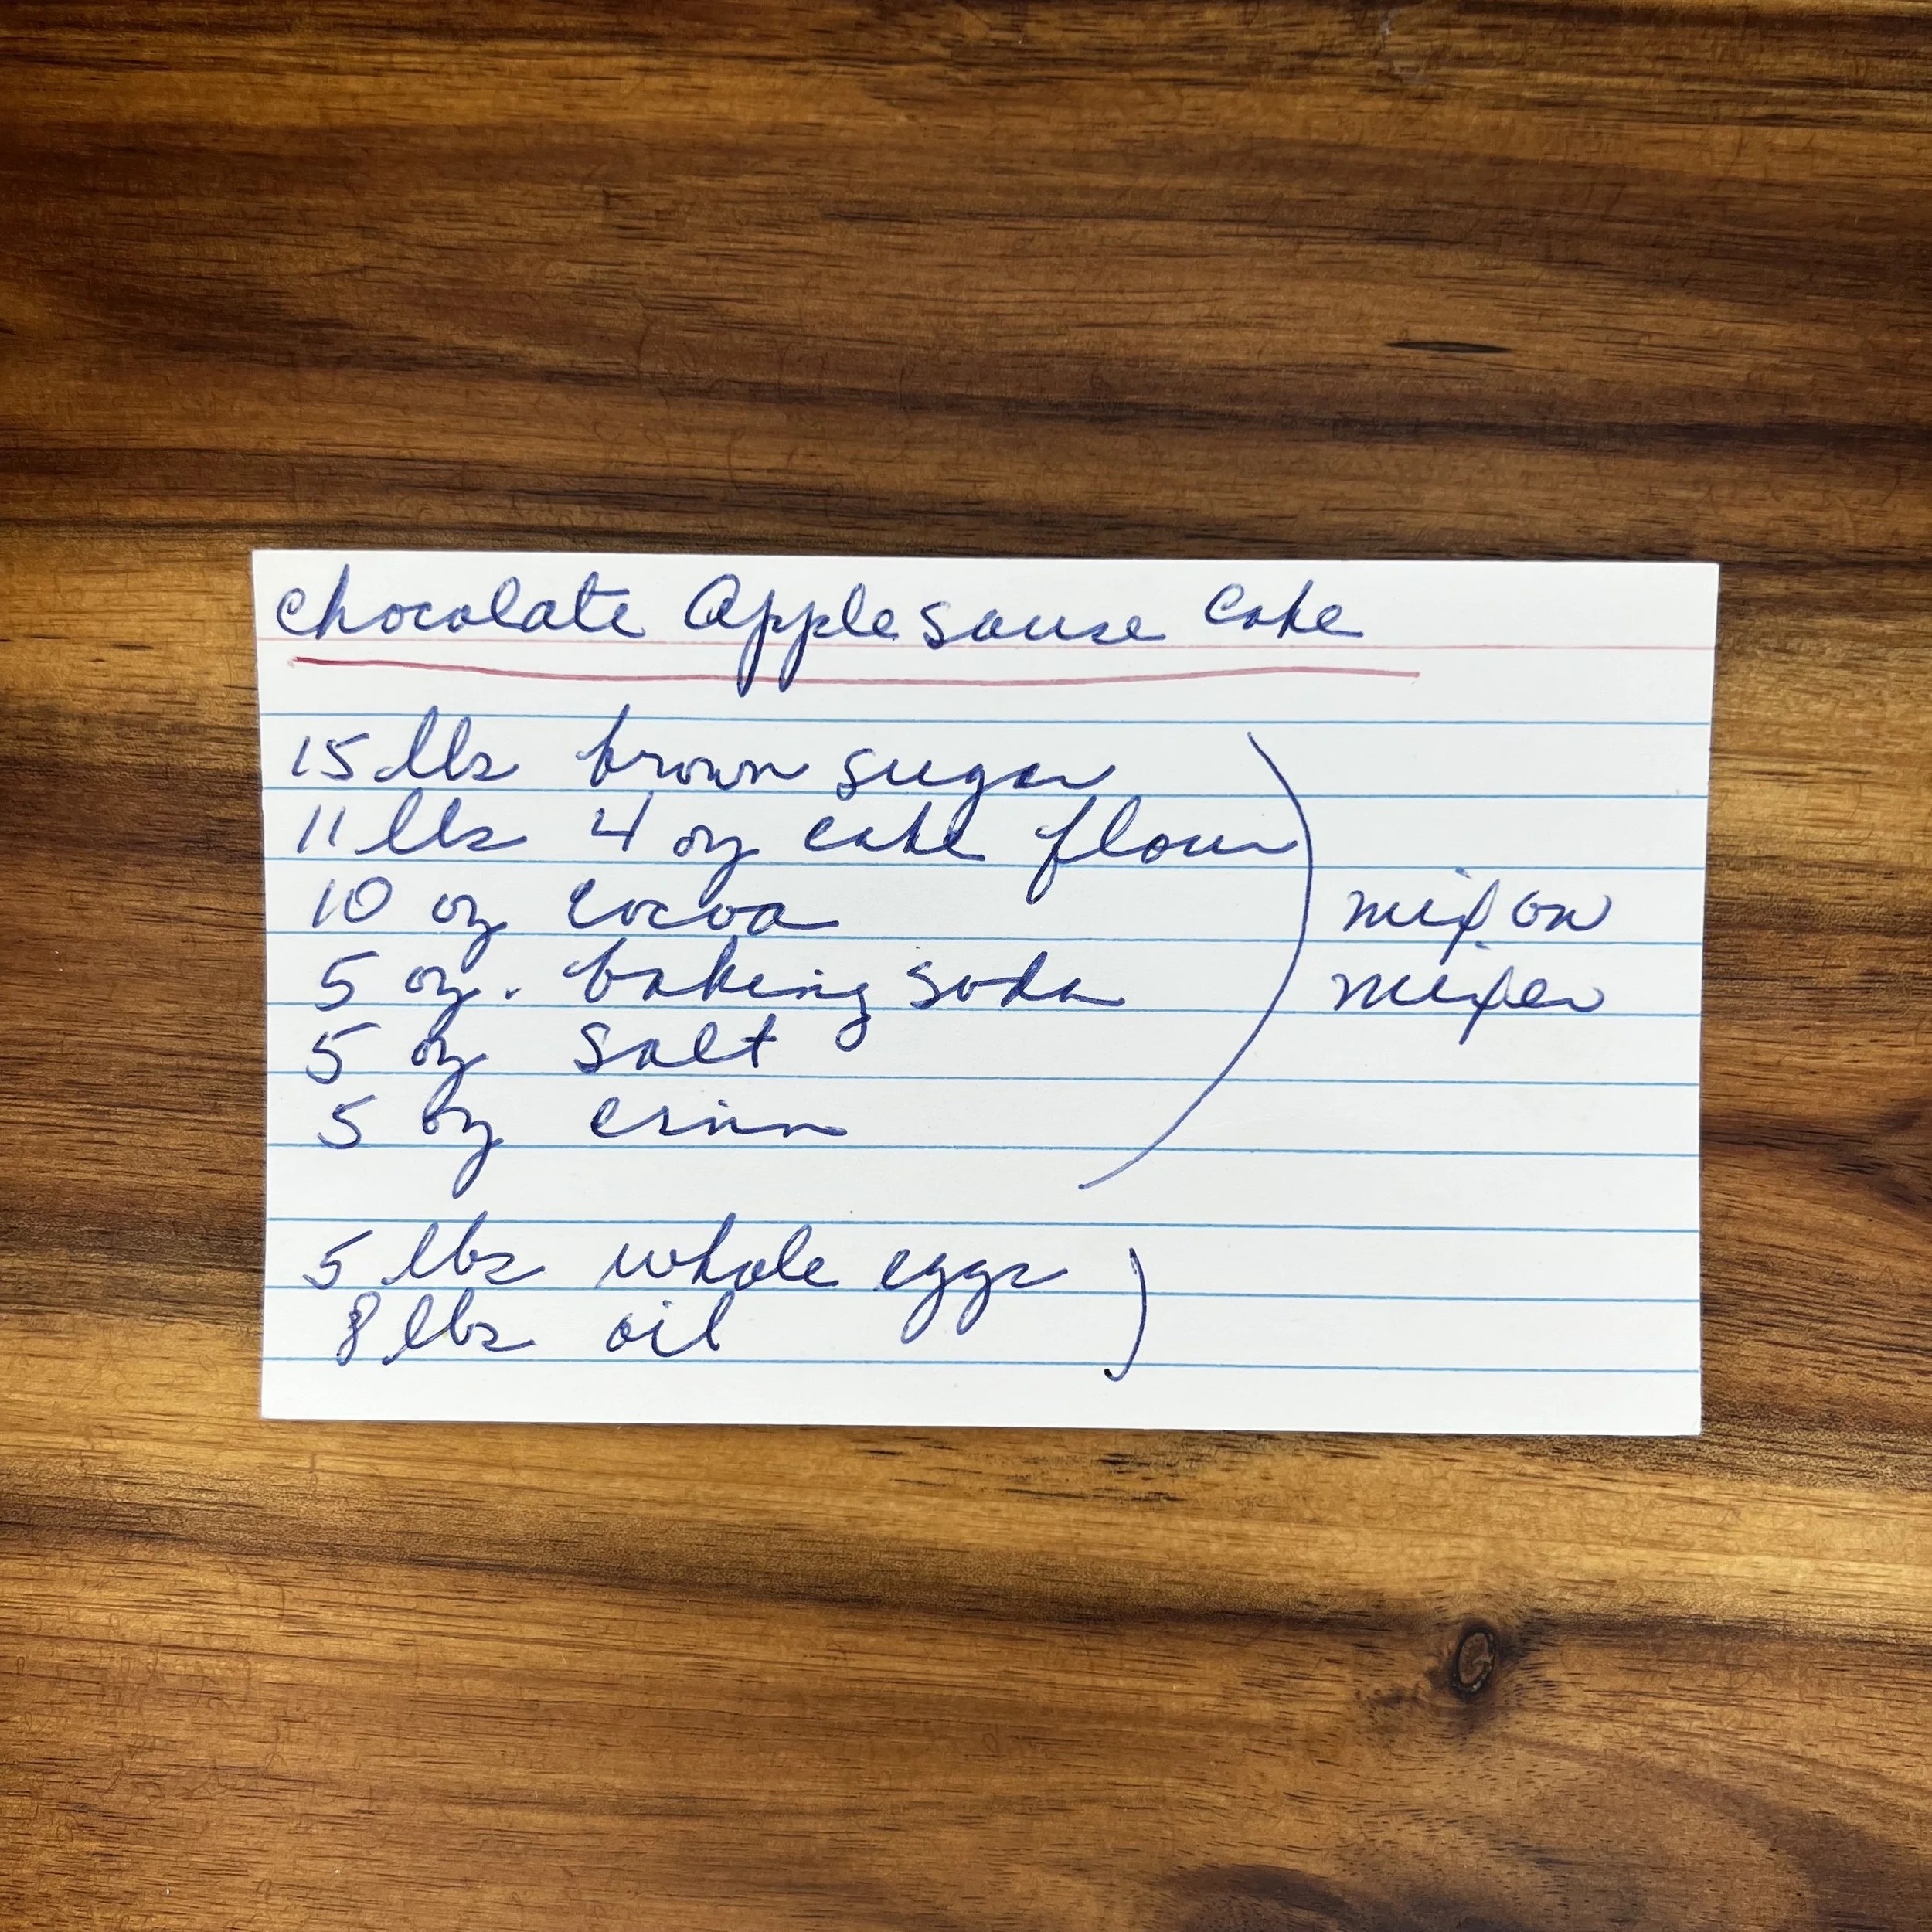 Chocolate Apple Sause Cake
15 lbs brown sugar
11 lbs 4 oz cake flour
10 oz cocoa
5 oz. baking soda
5 oz salt
5 oz
mix on
mixer
5 lbs whole eggs
8 lbs oil